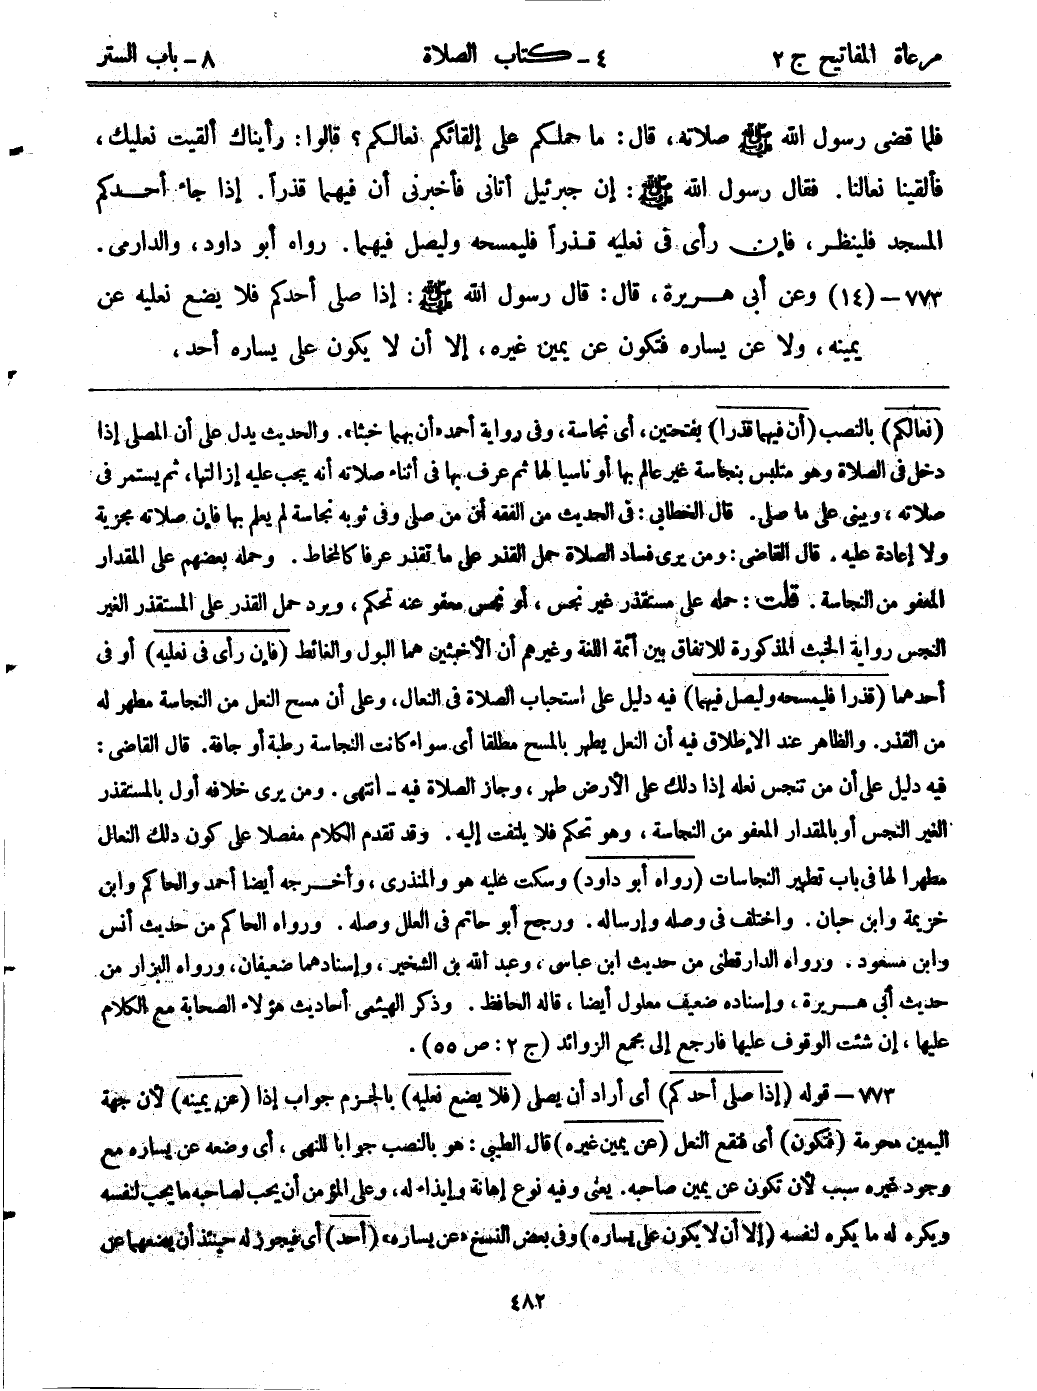 مرعاة المفاتيح ج ٢ ٤ - كتاب الصلاة ٨ - باب الستر
فلما قضى رسول الله ﷺ صلاته، قال: ما حملكم على إلقائكم نعالكم؟ قالوا: رأيناك ألقيت نعليك،
فألقينا نعالنا. فقال رسول الله ﷺ: إن جبرئيل أتانى فأخبرنى أن فيهما قذراً. إذا جاء أحدكم
المسجد فلينظر، فإن رأى فى نعليه قذراً فليمسحه وليصل فيهما. رواه أبو داود، والدارمى.
٧٧٣ - (١٤) وعن أبى هريرة، قال: قال رسول الله ﷺ: إذا صلى أحدكم فلا يضع نعليه عن
يمينه، ولا عن يساره فتكون عن يمين غيره، إلا أن لا يكون على يساره أحد،
(نعالكم) بالنصب (أن فيهما قذرا) بفتحتين، أى نجاسة، وفى رواية أحمد «أن بهما خبثا». والحديث يدل على أن المصلى إذا
دخل فى الصلاة وهو متلبس بنجاسة غير عالم بها أو ناسيا لها ثم عرف بها فى أثناء صلاته أنه يجب عليه إزالتها، ثم يستمر فى
صلاته، ويبنى على ما صلى. قال الخطابى: فى الحديث من الفقه أن من صلى وفى ثوبه نجاسة لم يعلم بها فإن صلاته مجزية
ولا إعادة عليه. قال القاضى: ومن يرى فساد الصلاة حمل القذر على ما تقذر عرفا كالمخاط. وحمله بعضهم على المقدار
المعفو من النجاسة. قلت: حمله على مستقذر غير نجس، أو نجس معفو عنه تحكم، ويرد حمل القذر على المستقذر الغير
النجس رواية الخبث المذكورة للاتفاق بين أئمة اللغة وغيرهم أن الأخبثين هما البول والغائط (فإن رأى فى نعليه) أو فى
أحدهما (قذرا فليمسحه وليصل فيهما) فيه دليل على استحباب الصلاة فى النعال، وعلى أن مسح النعل من النجاسة مطهر له
من القذر. والظاهر عند الإطلاق فيه أن النعل يطهر بالمسح مطلقا أى سواء كانت النجاسة رطبة أو جافة. قال القاضى:
فيه دليل على أن من تنجس نعله إذا دلك على الأرض طهر، وجاز الصلاة فيه - انتهى. ومن يرى خلافه أول بالمستقذر
الغير النجس أو بالمقدار المعفو من النجاسة، وهو تحكم فلا يلتفت إليه. وقد تقدم الكلام مفصلا على كون دلك النعال
مطهرا لها فى باب تطهير النجاسات (رواه أبو داود) وسكت عليه هو والمنذرى، وأخرجه أيضا أحمد والحاكم وابن
خزيمة وابن حبان. واختلف فى وصله وإرساله. ورجح أبو حاتم فى العلل وصله. ورواه الحاكم من حديث أنس
وابن مسعود. ورواه الدارقطنى من حديث ابن عباس، وعبد الله بن الشخير، وإسنادهما ضعيفان، ورواه البزار من
حديث أبى هريرة، وإسناده ضعيف معلول أيضا، قاله الحافظ. وذكر الهيثمى أحاديث هؤلاء الصحابة مع الكلام
عليها، إن شئت الوقوف عليها فارجع إلى مجمع الزوائد (ج ٢: ص ٥٥).
٧٧٣ - قوله (إذا صلى أحدكم) أى أراد أن يصلى (فلا يضع نعليه) بالجزم جواب إذا (عن يمينه) لأن جهة
اليمين محرمة (فتكون) أى فتقع النعل (عن يمين غيره) قال الطيبى: هو بالنصب جوابا للنهى، أى وضعه عن يساره مع
وجود غيره سبب لأن تكون عن يمين صاحبه. يعنى وفيه نوع إهانة وإيذاء له، وعلى المؤمن أن يحب لصاحبه ما يحب لنفسه
ويكره له ما يكره لنفسه (إلا أن لا يكون على يساره) وفى بعض النسخ «عن يساره» (أحد) أى فيجوز له حينئذ أن يضعهما عن
٤٨٢